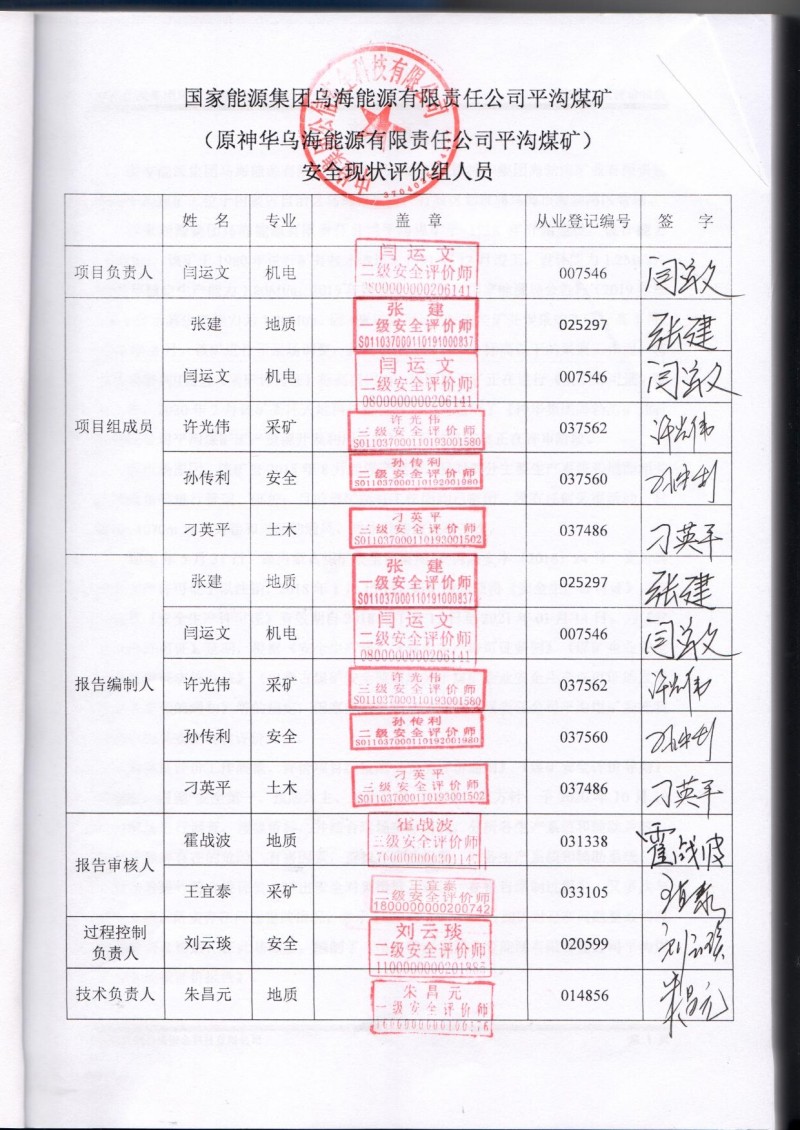 国家能源集团乌海能源有限责任公司平沟煤矿
（原神华乌海能源有限责任公司平沟煤矿）
安全现状评价组人员
姓 名 专业 盖 章 从业登记编号 签 字
项目负责人 闫运文 机电 闫运文 007546 闫运文
二级安全评价师
0800000000206141
张建 地质 张 建 025297 张建
一级安全评价师
S011037000110191000837
闫运文 机电 闫运文 007546 闫运文
二级安全评价师
0800000000206141
项目组成员 许光伟 采矿 许光伟 037562 许光伟
三级安全评价师
S011037000110193001580
孙传利 安全 孙传利 037560 孙传利
二级安全评价师
S011037000110192001980
刁英平 土木 刁英平 037486 刁英平
三级安全评价师
S011037000110193001502
张建 地质 张 建 025297 张建
一级安全评价师
S011037000110191000837
闫运文 机电 闫运文 007546 闫运文
二级安全评价师
0800000000206141
报告编制人 许光伟 采矿 许光伟 037562 许光伟
三级安全评价师
S011037000110193001580
孙传利 安全 孙传利 037560 孙传利
二级安全评价师
S011037000110192001980
刁英平 土木 刁英平 037486 刁英平
三级安全评价师
S011037000110193001502
报告审核人 霍战波 地质 霍战波 031338 霍战波
三级安全评价师
王宜泰 采矿 王宜泰 033105 王宜泰
二级安全评价师
1800000000200742
过程控制
负责人 刘云琰 安全 刘云琰 020599 刘云琰
二级安全评价师
技术负责人 朱昌元 地质 朱昌元 014856 朱昌元
一级安全评价师